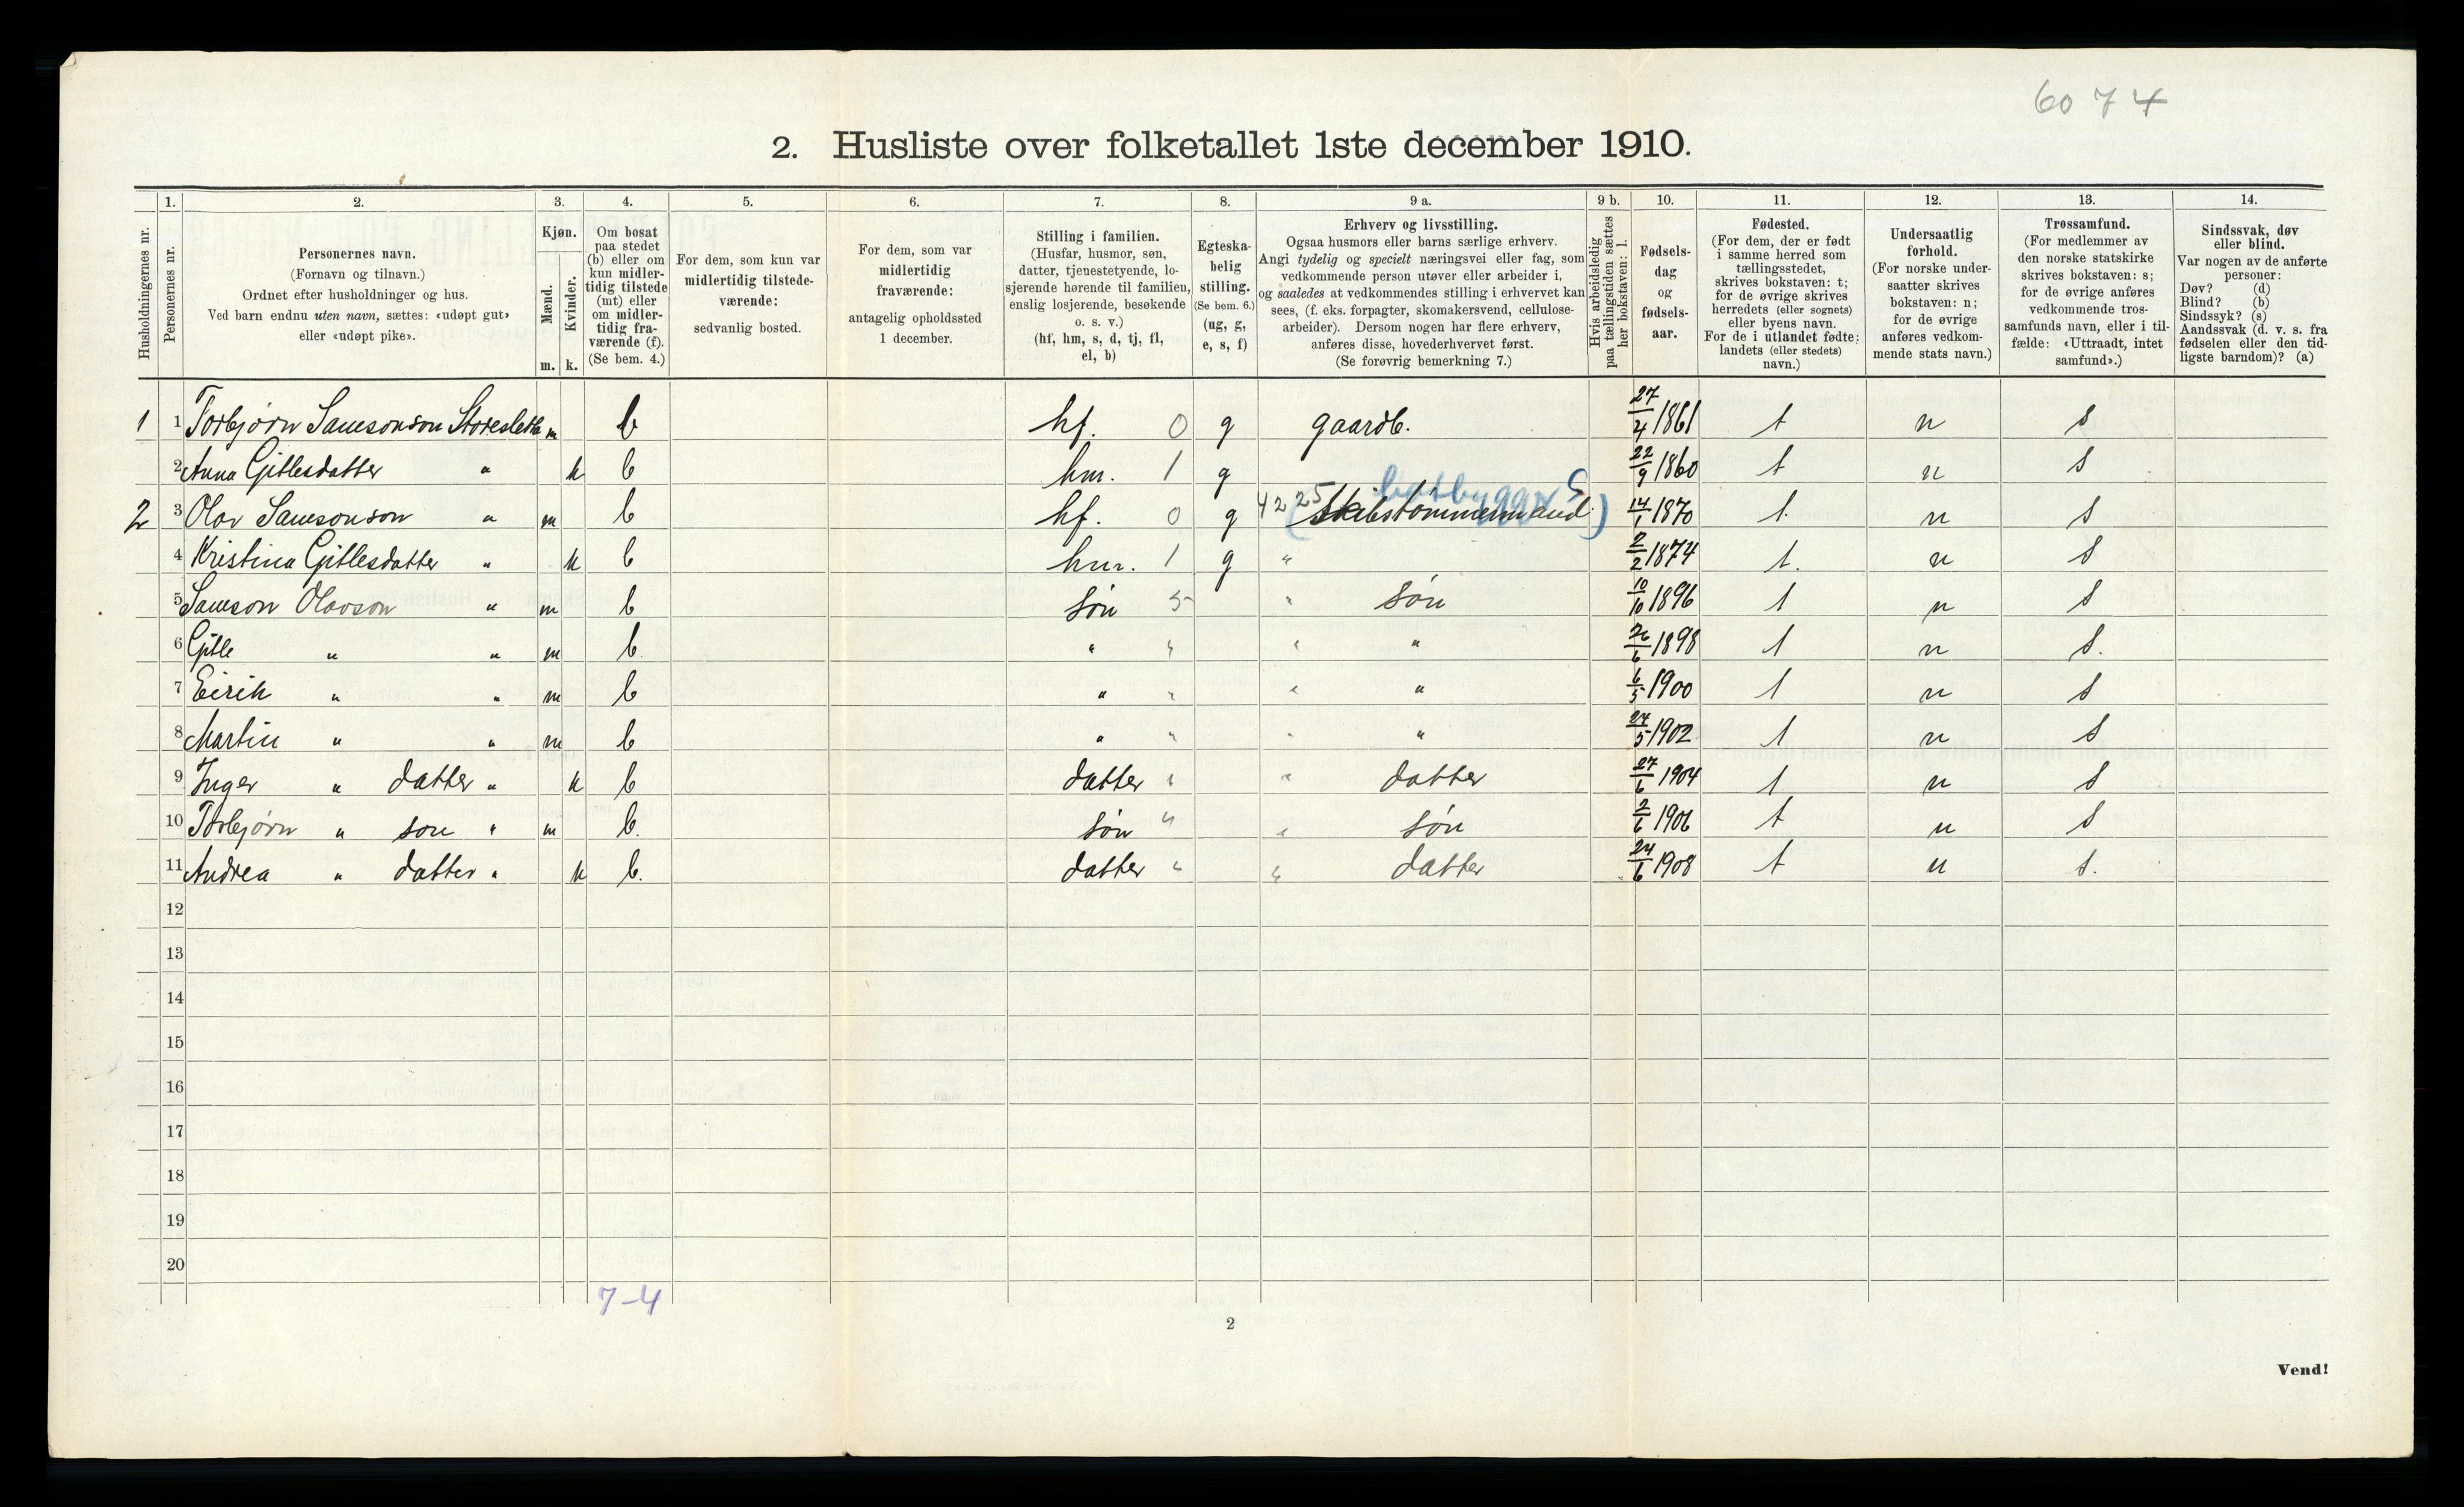 60 7 4
2. Husliste over folketallet 1ste december 1910.
1. 2. 3. 4. 5. 6. 7. 8. 9 a. 9 b. 10. 11. 12. 13. 14.
Husholdningernes nr.
Personernes nr.
Personernes navn.
(Fornavn og tilnavn.)
Ordnet efter husholdninger og hus.
Ved barn endnu uten navn, sættes: «udøpt gut»
eller «udøpt pike».
Kjøn.
Mænd.
Kvinder.
m. k.
Om bosat
paa stedet
(b) eller om
kun midler-
tidig tilstede
(mt) eller
om midler-
tidig fra-
værende (f).
(Se bem. 4.)
For dem, som kun var
midlertidig tilstede-
værende:
sedvanlig bosted.
For dem, som var
midlertidig
fraværende:
antagelig opholdssted
1 december.
Stilling i familien.
(Husfar, husmor, søn,
datter, tjenestetyende, lo-
sjerende hørende til familien,
enslig losjerende, besøkende
o. s. v.)
(hf, hm, s, d, tj, fl,
el, b)
Egteska-
belig
stilling.
(Se bem. 6.)
(ug, g,
e, s, f)
Erhverv og livsstilling.
Ogsaa husmors eller barns særlige erhverv.
Angi tydelig og specielt næringsvei eller fag, som
vedkommende person utøver eller arbeider i,
og saaledes at vedkommendes stilling i erhvervet kan
sees, (f. eks. forpagter, skomakersvend, cellulose-
arbeider). Dersom nogen har flere erhverv,
anføres disse, hovederhvervet først.
(Se forøvrig bemerkning 7.)
Hvis arbeidsledig
paa tællingstiden sættes
her bokstaven: l.
Fødsels-
dag
og
fødsels-
aar.
Fødested.
(For dem, der er født
i samme herred som
tællingsstedet,
skrives bokstaven: t;
for de øvrige skrives
herredets (eller sognets)
eller byens navn.
For de i utlandet fødte:
landets (eller stedets)
navn.)
Undersaatlig
forhold.
(For norske under-
saatter skrives
bokstaven: n;
for de øvrige
anføres vedkom-
mende stats navn.)
Trossamfund.
(For medlemmer av
den norske statskirke
skrives bokstaven: s;
for de øvrige anføres
vedkommende tros-
samfunds navn, eller i til-
fælde: «Uttraadt, intet
samfund».)
Sindssvak, døv
eller blind.
Var nogen av de anførte
personer:
Døv? (d)
Blind? (b)
Sindssyk? (s)
Aandssvak (d. v. s. fra
fødselen eller den tid-
ligste barndom)? (a)
1 1 Torbjørn Samsonson Storesletta m b hf. 0 g gaardb. 27/4 1861 t n s
2 Anna Gitlesdatter " k b hm. 1 g 22/9 1860 t n s
baatbygger E
2 3 Olav Samsonson " m b hf. 0 g 4225 (Skibstømmermand) 14/1 1870 t. n s
4 Kristina Gitlesdatter " k b hm. 1 g " 2/2 1874 t. n s
5 Samson Olavson " m b søn 5 " søn 10/10 1896 t n s
6 Gitle " " m b. " " " " 26/6 1898 t n s.
7 Eirik " " m b " " " " 6/5 1900 t n s
8 Martin " " m b " " " " 24/5 1902 t n s
9 Inger " datter " k b datter " " datter 27/6 1904 t n s
10 Torbjørn " son " m b. søn " " søn 2/6 1906 t n s
11 Andrea " datter " k b. datter " " datter 24/6 1908 t n s.
12
13
14
15
16
17
18
19
20
7-4
2
Vend!